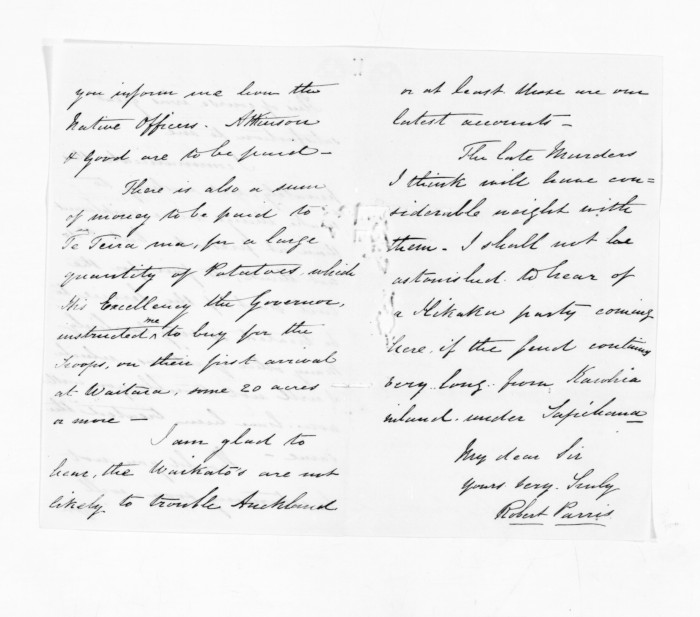 you inform me how the
Native Officers. Atkinson
& Good are to be paid –
There is also a sum
of money to be paid to
Te Teira ma, for a large
quantity of Potatoes, which
His Excellency the Governor,
instructed me to buy for the
troops, on their first arrival
at Waitara, some 20 acres
or more –
I am glad to
hear, the Waikato's are not
likely to trouble Auckland
or at least those are our
latest accounts –
The late Murders
I think will have con=
siderable weight with
them. I shall not be
astonished to hear of
a Hikaka party coming
here, if the feud continues
very long, from Kawhia
inland, under Tapihana
My dear Sir
yours very Truly
Robert Parris